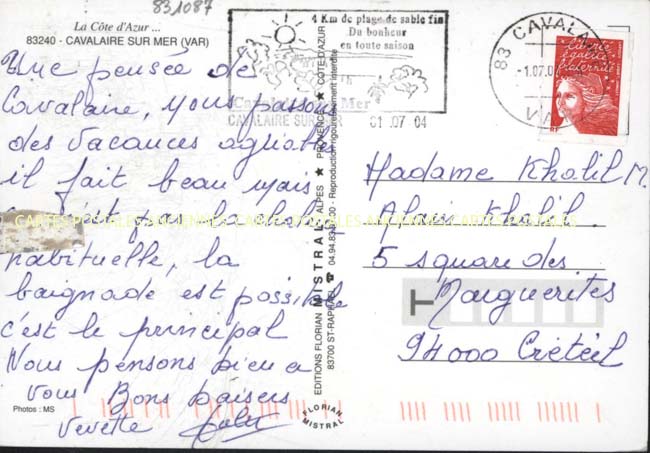 831087
La Côte d'Azur ...
83240 - CAVALAIRE SUR MER (VAR)
4 Km de plage de sable fin
Du bonheur
en toute saison
CAVALAIRE SUR MER 01 .07 04
83 CAVALAIRE
- 1.07.0
VAR
Liberté
égalité
fraternité
Une pensée de
Cavalaire, nous passons
des vacances agréables
il fait beau mais
CARTES POSTALES ANCIENNES CARTES POSTALES ANCIENNES CARTES POSTALES
habituelle, la
baignade est possible
c'est le principal
Nous pensons bien a
vous Bons baisers
Vevette
Photos : MS
EDITIONS FLORIAN MISTRAL ALPES ★ PROVENCE ★ CÔTE D'AZUR
83700 ST-RAPHAËL ☎ 04.94.83 Reproduction rigoureusement interdite
FLORIAN
MISTRAL
Madame Khalil M.
Alain Khalil.
5 square des
Marguerites
94000 Créteil